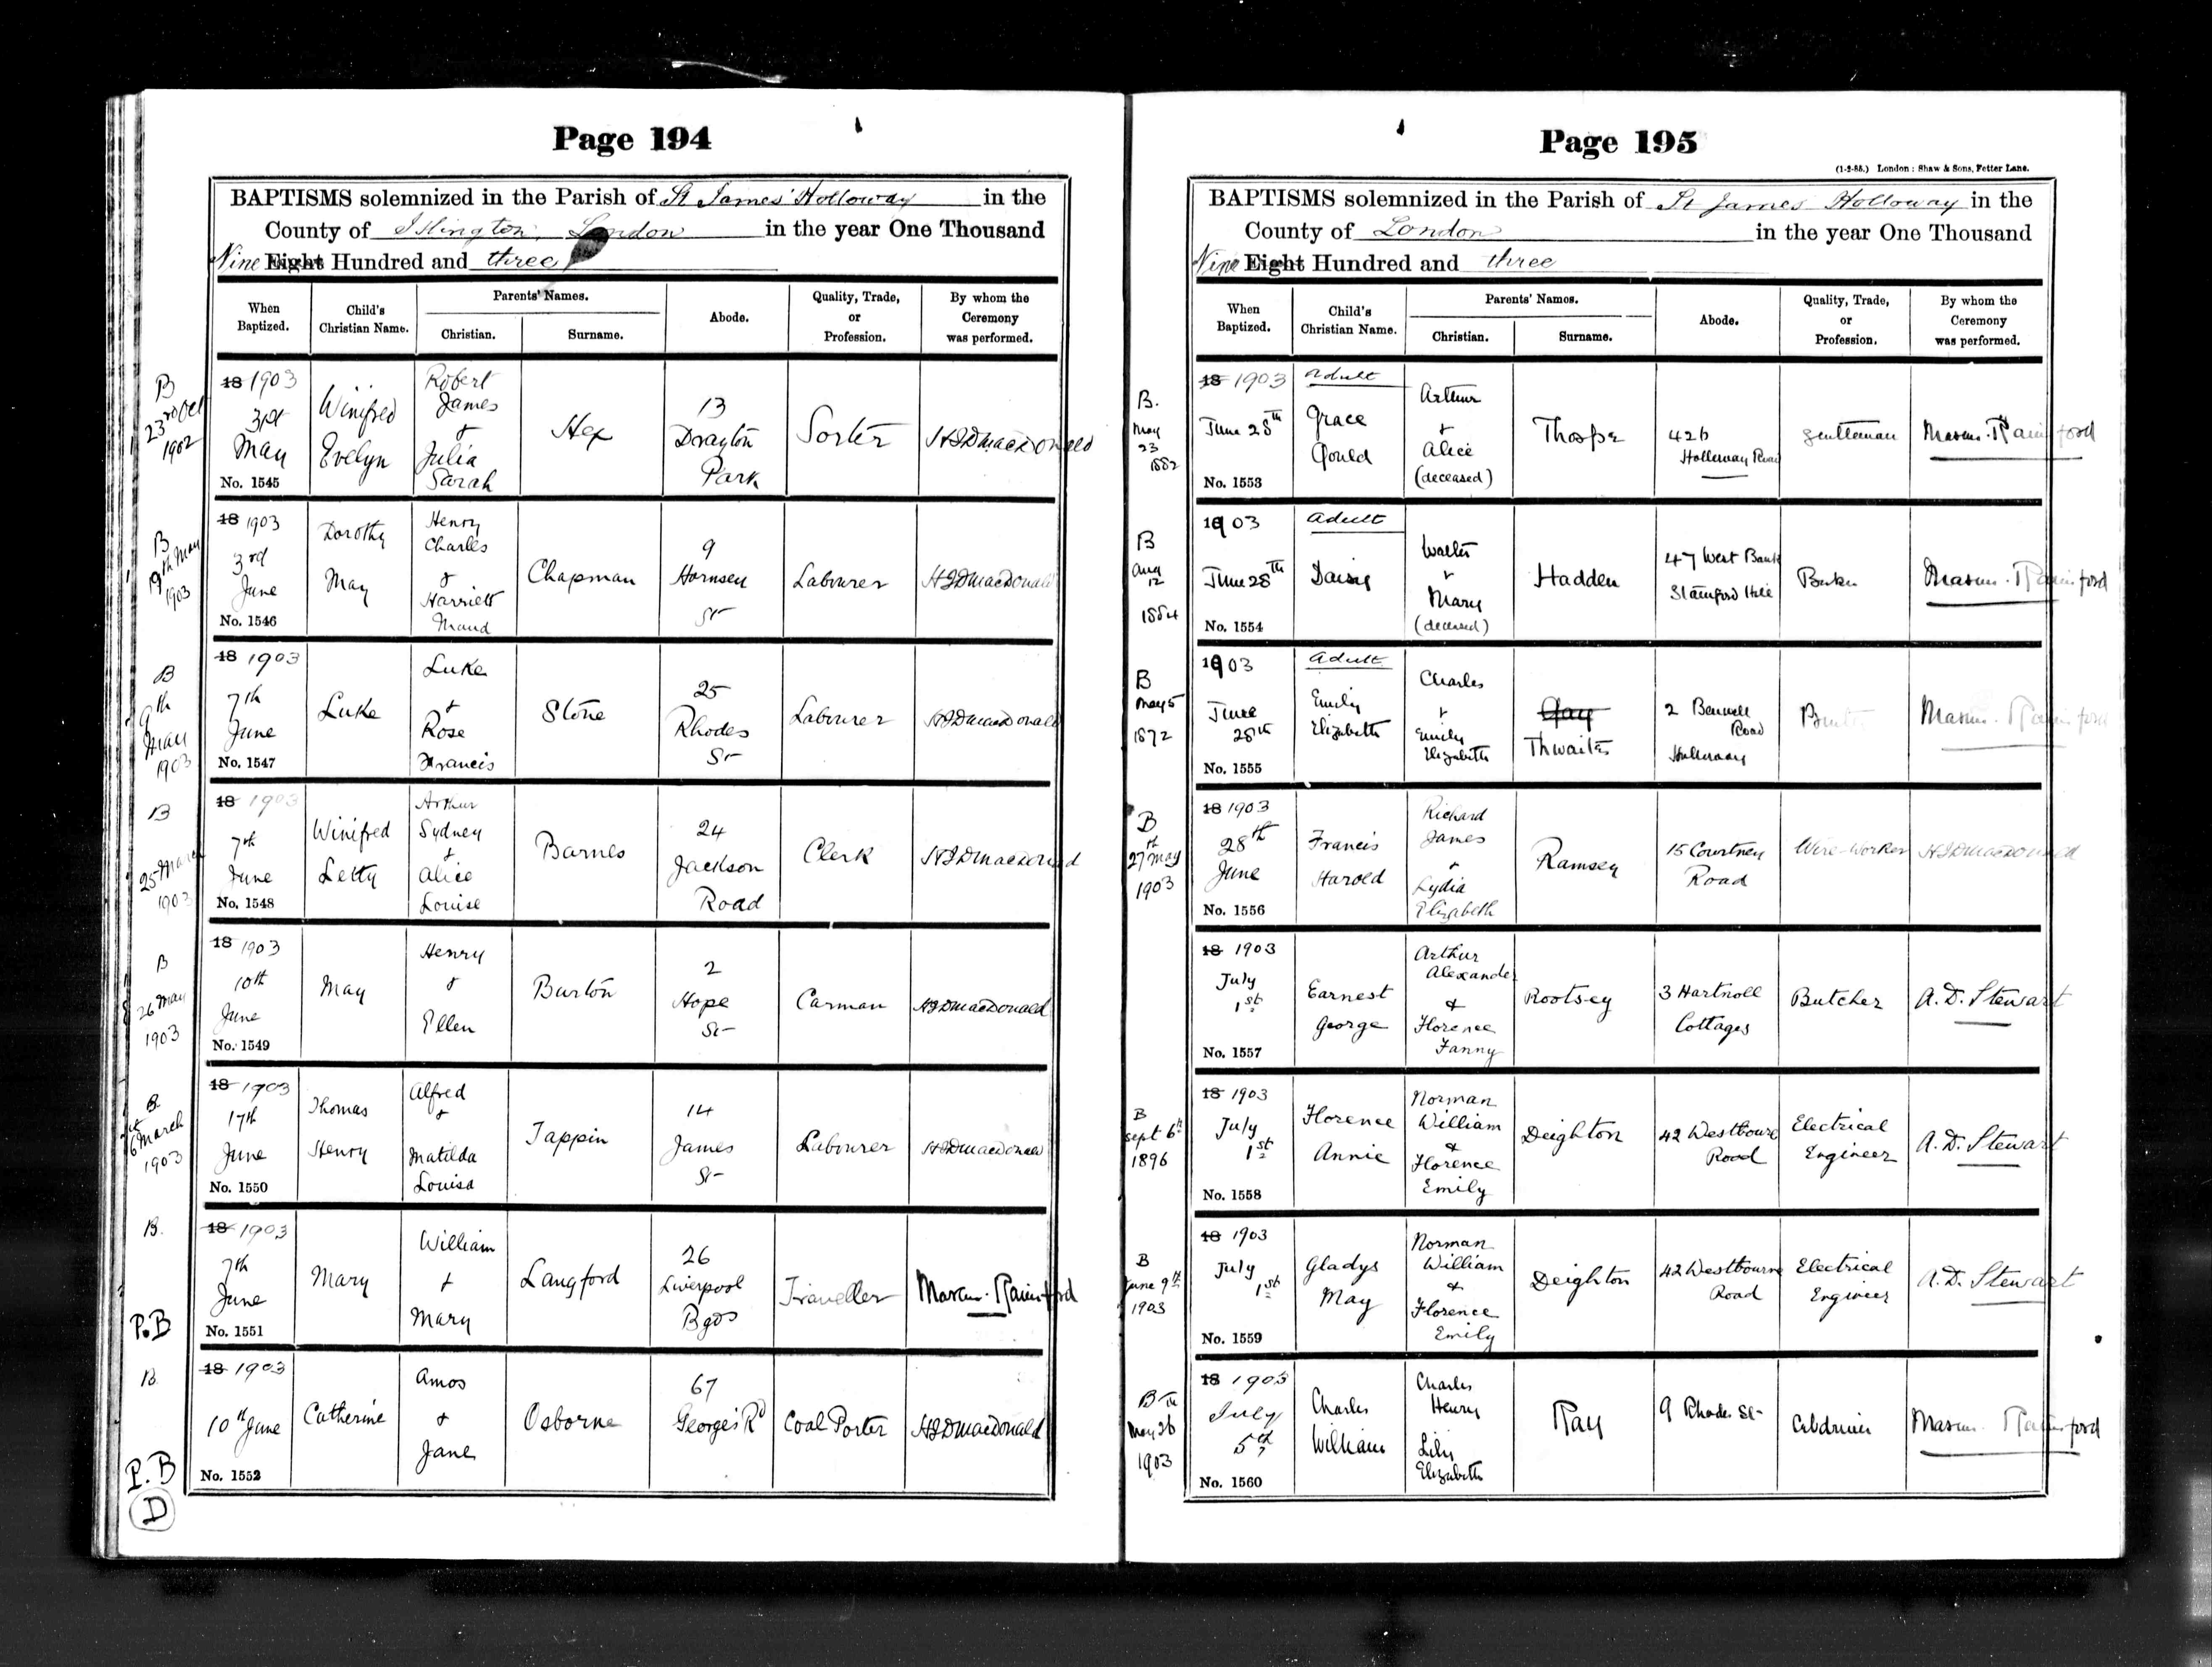 Page 194
BAPTISMS solemnized in the Parish of St James' Holloway in the
County of Islington, London in the year One Thousand
Nine Eight Hundred and three
When Baptized.
Child's Christian Name.
Parents' Names.
Christian.
Surname.
Abode.
Quality, Trade, or Profession.
By whom the Ceremony was performed.
B
23rd Oct
1902
18 1903
31st
May
No. 1545
Winifred
Evelyn
Robert
James
&
Julia
Sarah
Hex
13
Drayton
Park
Sorter
HJDMacDonald
B
19th May
1903
18 1903
3rd
June
No. 1546
Dorothy
May
Henry
Charles
&
Harriett
Maud
Chapman
9
Hornsey
St
Labourer
HJDMacDonald
B
9th
May
1903
18 1903
7th
June
No. 1547
Luke
Luke
&
Rose
Francis
Stone
25
Rhodes
St
Labourer
HJDMacDonald
B
25 March
1903
18 1903
7th
June
No. 1548
Winifred
Letty
Arthur
Sydney
&
Alice
Louise
Barnes
24
Jackson
Road
Clerk
HJDMacDonald
B
26 May
1903
18 1903
10th
June
No. 1549
May
Henry
&
Ellen
Burton
2
Hope
St
Carman
HJDMacDonald
B
March
1903
18 1903
17th
June
No. 1550
Thomas
Henry
Alfred
&
Matilda
Louisa
Tappin
14
James
St
Labourer
HJDMacDonald
B.
P.B
18 1903
7th
June
No. 1551
Mary
William
&
Mary
Langford
26
Liverpool
Bgds
Traveller
Marcus Rainsford
B
P.B
D
18 1903
10th June
No. 1552
Catherine
Amos
&
Jane
Osborne
67
George's Rd
Coal Porter
HJDMacDonald
Page 195
(1-2-85.) London: Shaw & Sons, Fetter Lane.
BAPTISMS solemnized in the Parish of St James Holloway in the
County of London in the year One Thousand
Nine Eight Hundred and three
When Baptized.
Child's Christian Name.
Parents' Names.
Christian.
Surname.
Abode.
Quality, Trade, or Profession.
By whom the Ceremony was performed.
B.
May
23
1882
18 1903
June 28th
No. 1553
Adult
Grace
Gould
Arthur
&
Alice
(deceased)
426
Holloway Road
Gentleman
Marcus Rainsford
B
Aug
12
1884
1903
June 28th
No. 1554
Adult
Daisy
Walter
&
Mary
(deceased)
Hadden
47 West Bank
Stamford Hill
Marcus Rainsford
B
May 5
1872
1903
June
28th
No. 1555
Adult
Emily
Elizabeth
Charles
&
Emily
Elizabeth
Gay
Thwaites
2
Road
Holloway
Marcus Rainsford
B
27th May
1903
18 1903
28th
June
No. 1556
Francis
Harold
Richard
James
&
Lydia
Elizabeth
Ramsey
15 Courtney
Road
Wire-worker
HJDMacDonald
18 1903
July
1st
No. 1557
Earnest
George
Arthur
Alexander
&
Florence
Fanny
Rootsey
3 Hartnoll
Cottages
Butcher
A. D. Stewart
B
Sept 6th
1896
18 1903
July
1st
No. 1558
Florence
Annie
Norman
William
&
Florence
Emily
Deighton
42 Westbourne
Road
Electrical
Engineer
A. D. Stewart
B
June 9th
1903
18 1903
July
1st
No. 1559
Gladys
May
Norman
William
&
Florence
Emily
Deighton
42 Westbourne
Road
Electrical
Engineer
A. D. Stewart
B
May 26
1903
18 1903
July
5th
No. 1560
Charles
William
Charles
Henry
Lily
Elizabeth
Ray
9 Rhodes St
Marcus Rainsford